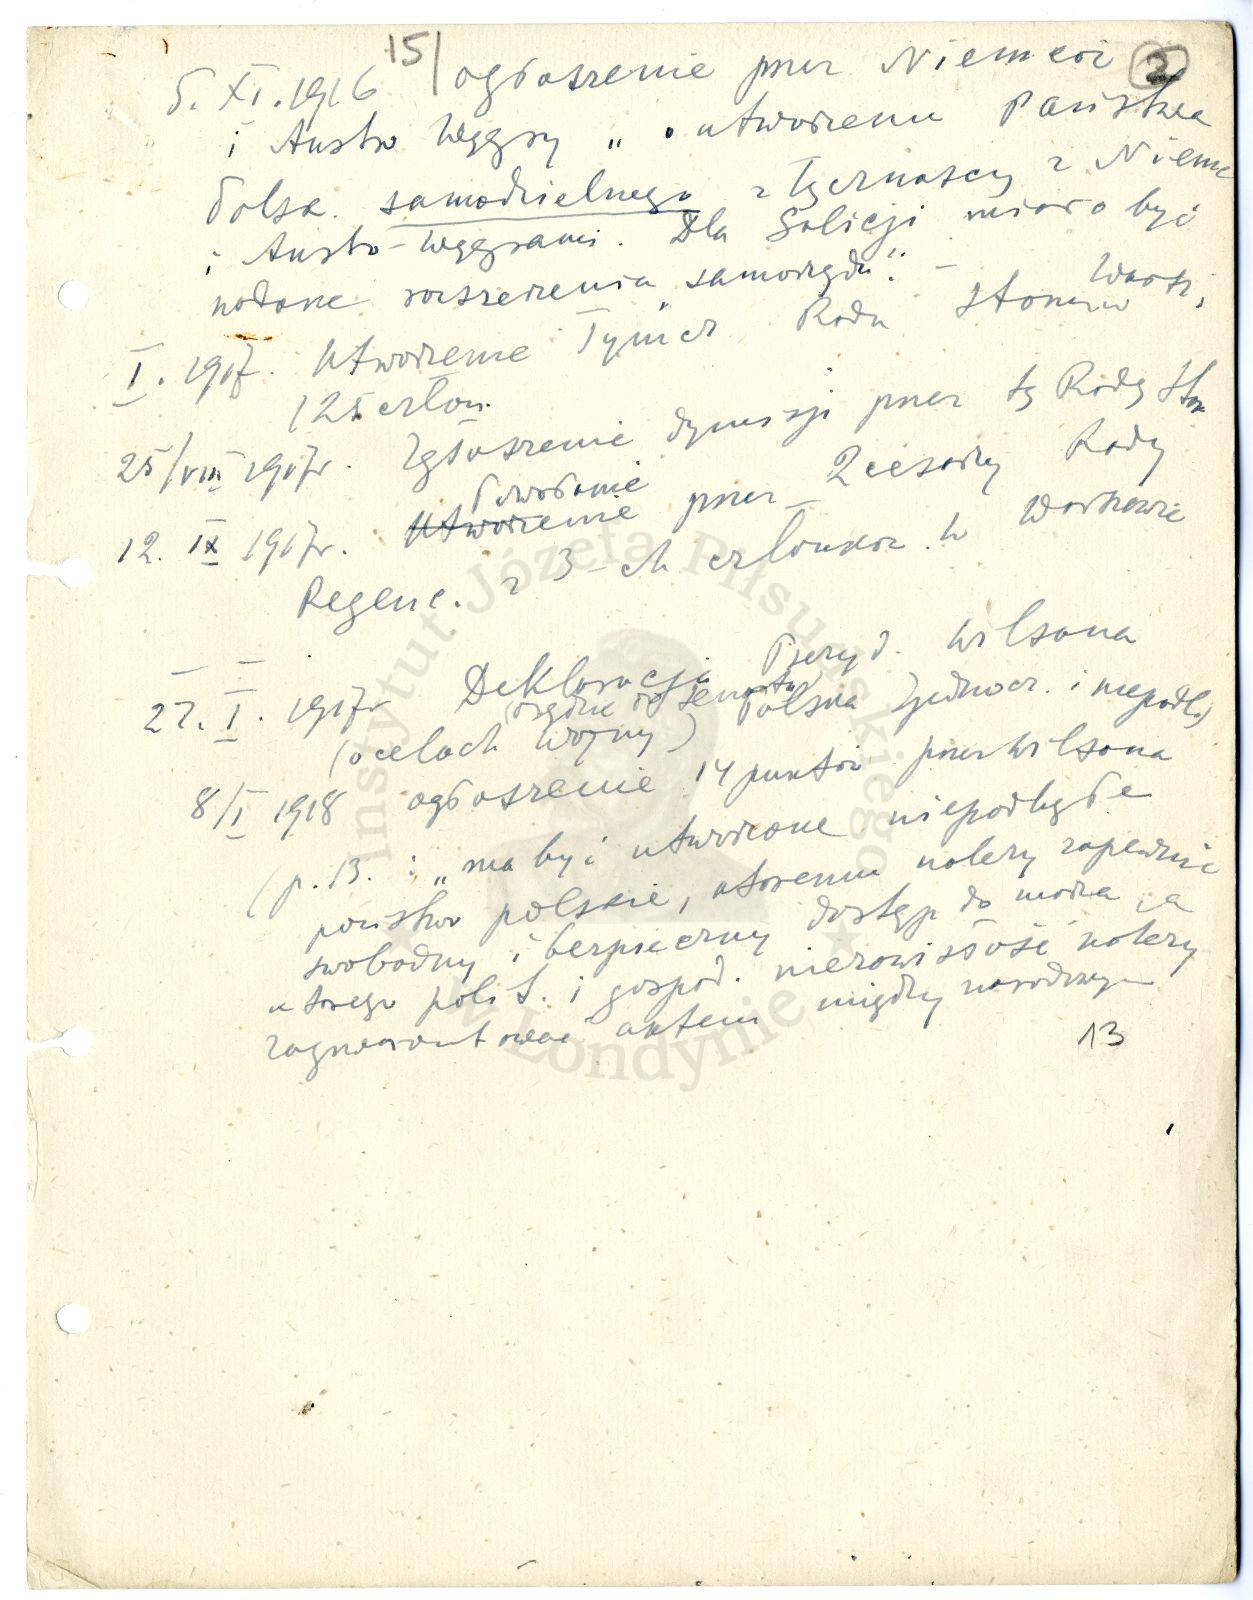 15/
2
5. XI. 1916 ogłoszenie przez Niemcy
i Austro Węgry „o utworzeniu Państwa
Polsk. samodzielnego z łącznością z Niemc
i Austro-Węgrami. Dla Galicji miało być
nadane rozszerzenia „samorządu”. –
I. 1917. Utworzenie Tymcz Rada Stanu w Warsz.
/25 człon.
25/VIII 1917r. Zgłoszenie dymisji przez tę Radę Stan
12. IX 1917r. Utworzenie Powołanie przez 2 cesarzy Rady
Regenc. z 3-ch członków. w Warszawie
22. I. 1917r Deklaracja Prezyd. Wilsona
(orędzie do senatu)
(o celach wojny) Polska zjednocz. i niepodl.)
8/I 1918 ogłoszenie 14 punktów przez Wilsona
(p. 13. : „ma być utworzone niepodległe
państwo polskie, któremu należy zapewnić
swobodny i bezpieczny dostęp do morza i a
którego polit. i gospod. niezawisłość należy
zagwarantować aktem międzynarodowym
13
Instytut Józefa Piłsudskiego
w Londynie